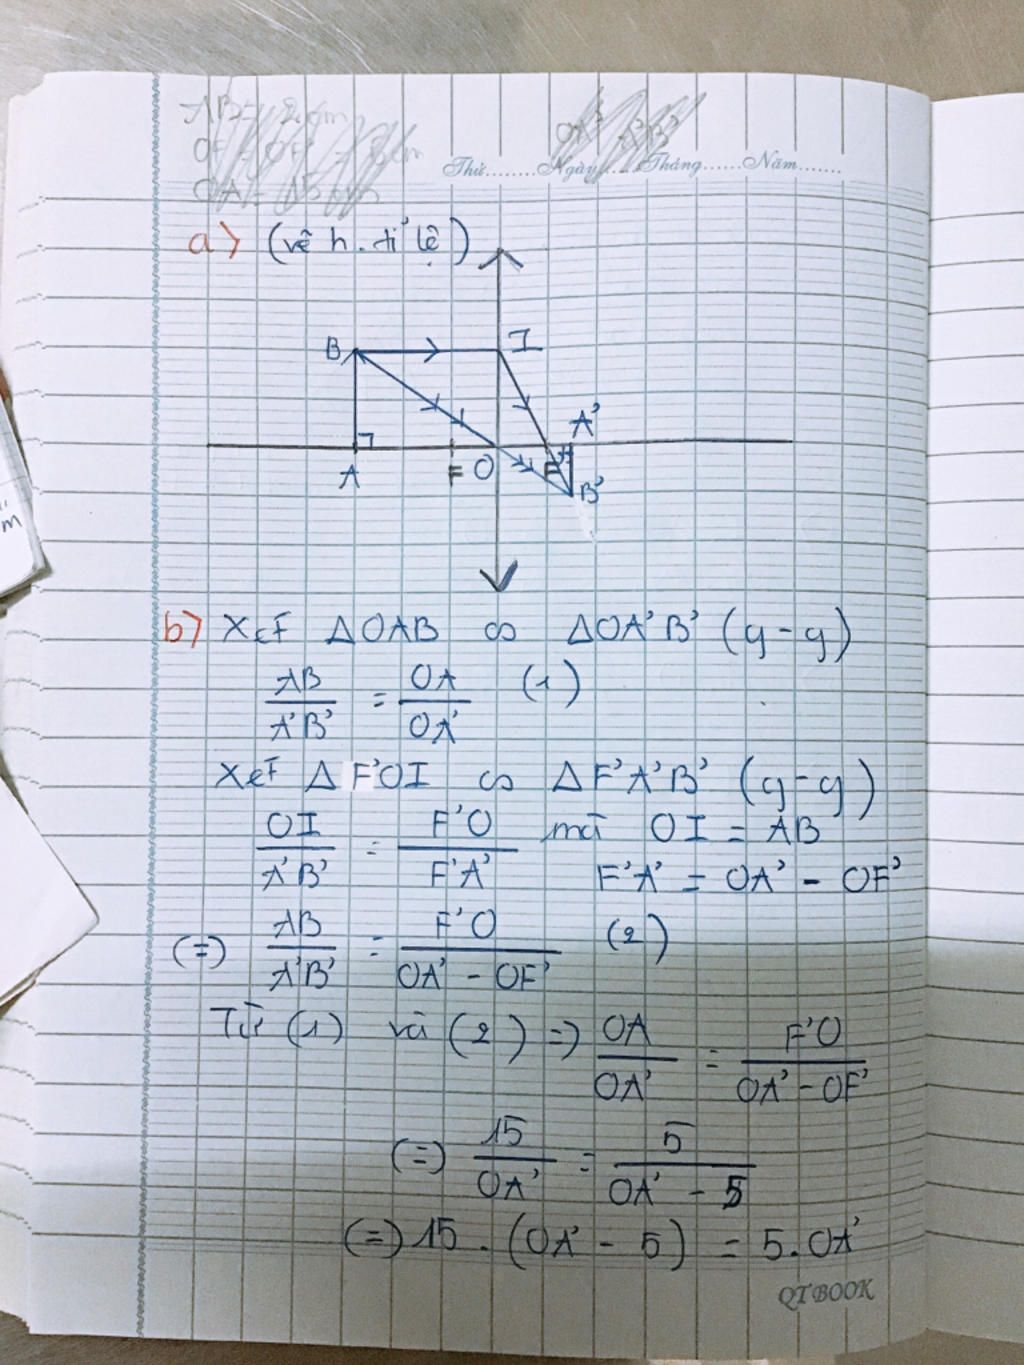 AB = 2cm
OF = OF' = 5cm
OA = 15cm
OA' A'B'
Thứ........Ngày......Tháng......Năm.......
a> (vẽ h. tỉ lệ)
B I
A'
A F O F'
B'
b> Xét ΔOAB ∽ ΔOA'B' (g-g)
AB/A'B' = OA/OA' (1)
Xét ΔF'OI ∽ ΔF'A'B' (g-g)
OI/A'B' = F'O/F'A' mà OI = AB
F'A' = OA' - OF'
(=) AB/A'B' = F'O/OA' - OF' (2)
Từ (1) và (2) => OA/OA' = F'O/OA' - OF'
(=) 15/OA' = 5/OA' - 5
(=) 15 . (OA' - 5) = 5.OA'
QTBOOK
m